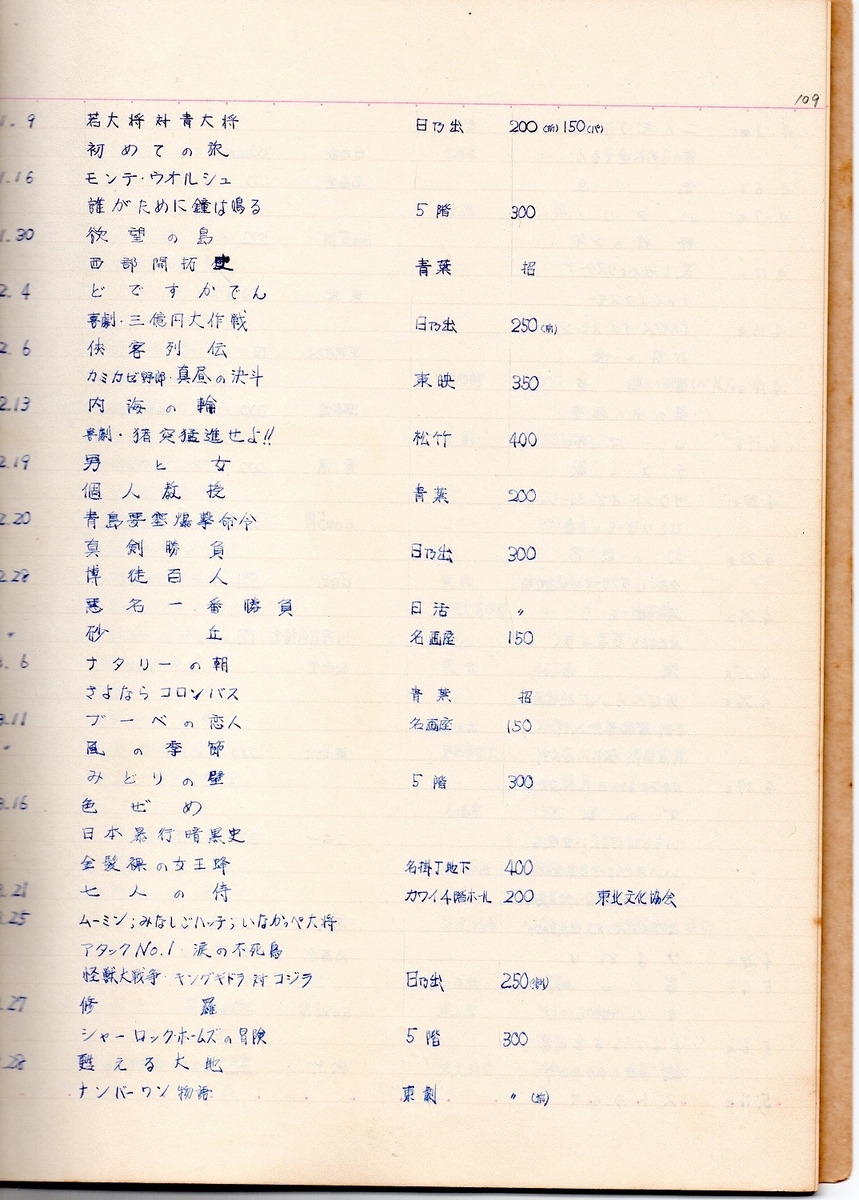 109
1. 9 若大将対青大将 日乃出 200(前)150(パ)
初めての旅
1.16 モンテ・ウオルシュ
誰がために鐘は鳴る 5階 300
1.30 欲望の島
西部開拓史 青葉 招
2. 4 どですかでん
喜劇・三億円大作戦 日乃出 250(前)
2. 6 侠客列伝
カミカゼ野郎・真昼の決斗 東映 350
2.13 内海の輪
喜劇・猪突猛進せよ!! 松竹 400
2.19 男と女
個人教授 青葉 200
2.20 青島要塞爆撃命令
真剣勝負 日乃出 300
2.28 博徒百人
悪名一番勝負 日活 〃
〃 砂丘 名画座 150
3. 6 ナタリーの朝
さよならコロンバス 青葉 招
3.11 ブーベの恋人 名画座 150
〃 風の季節
みどりの壁 5階 300
3.16 色ぜめ
日本暴行暗黒史
金髪裸の女王蜂 名掛丁地下 400
3.21 七人の侍 カワイ4階ホール 200 東北文化協会
.25 ムーミン;みなしごハッチ;いなかっぺ大将
アタックNo.1・涙の不死鳥
怪獣大戦争・キングギドラ対ゴジラ 日乃出 250
.27 修羅
シャーロック・ホームズの冒険 5階 300
.28 甦える大地
ナンバーワン物語 東劇 〃(前)